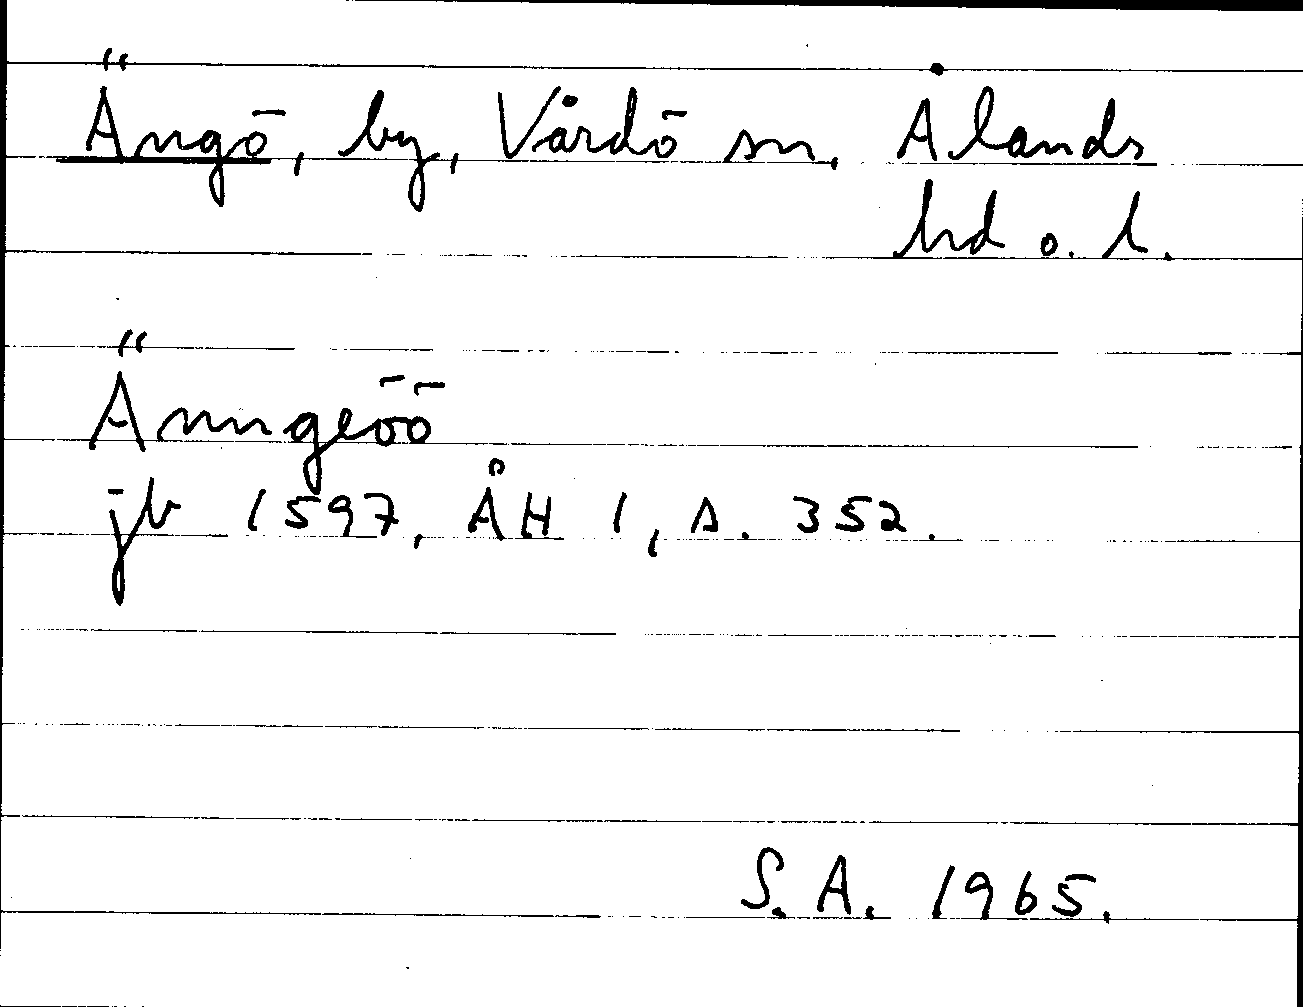 Ängö, by, Vårdö sn, Ålands
hd o. l.
Änngeöö
jb 1597, ÅH 1, s. 352.
S. A. 1965.